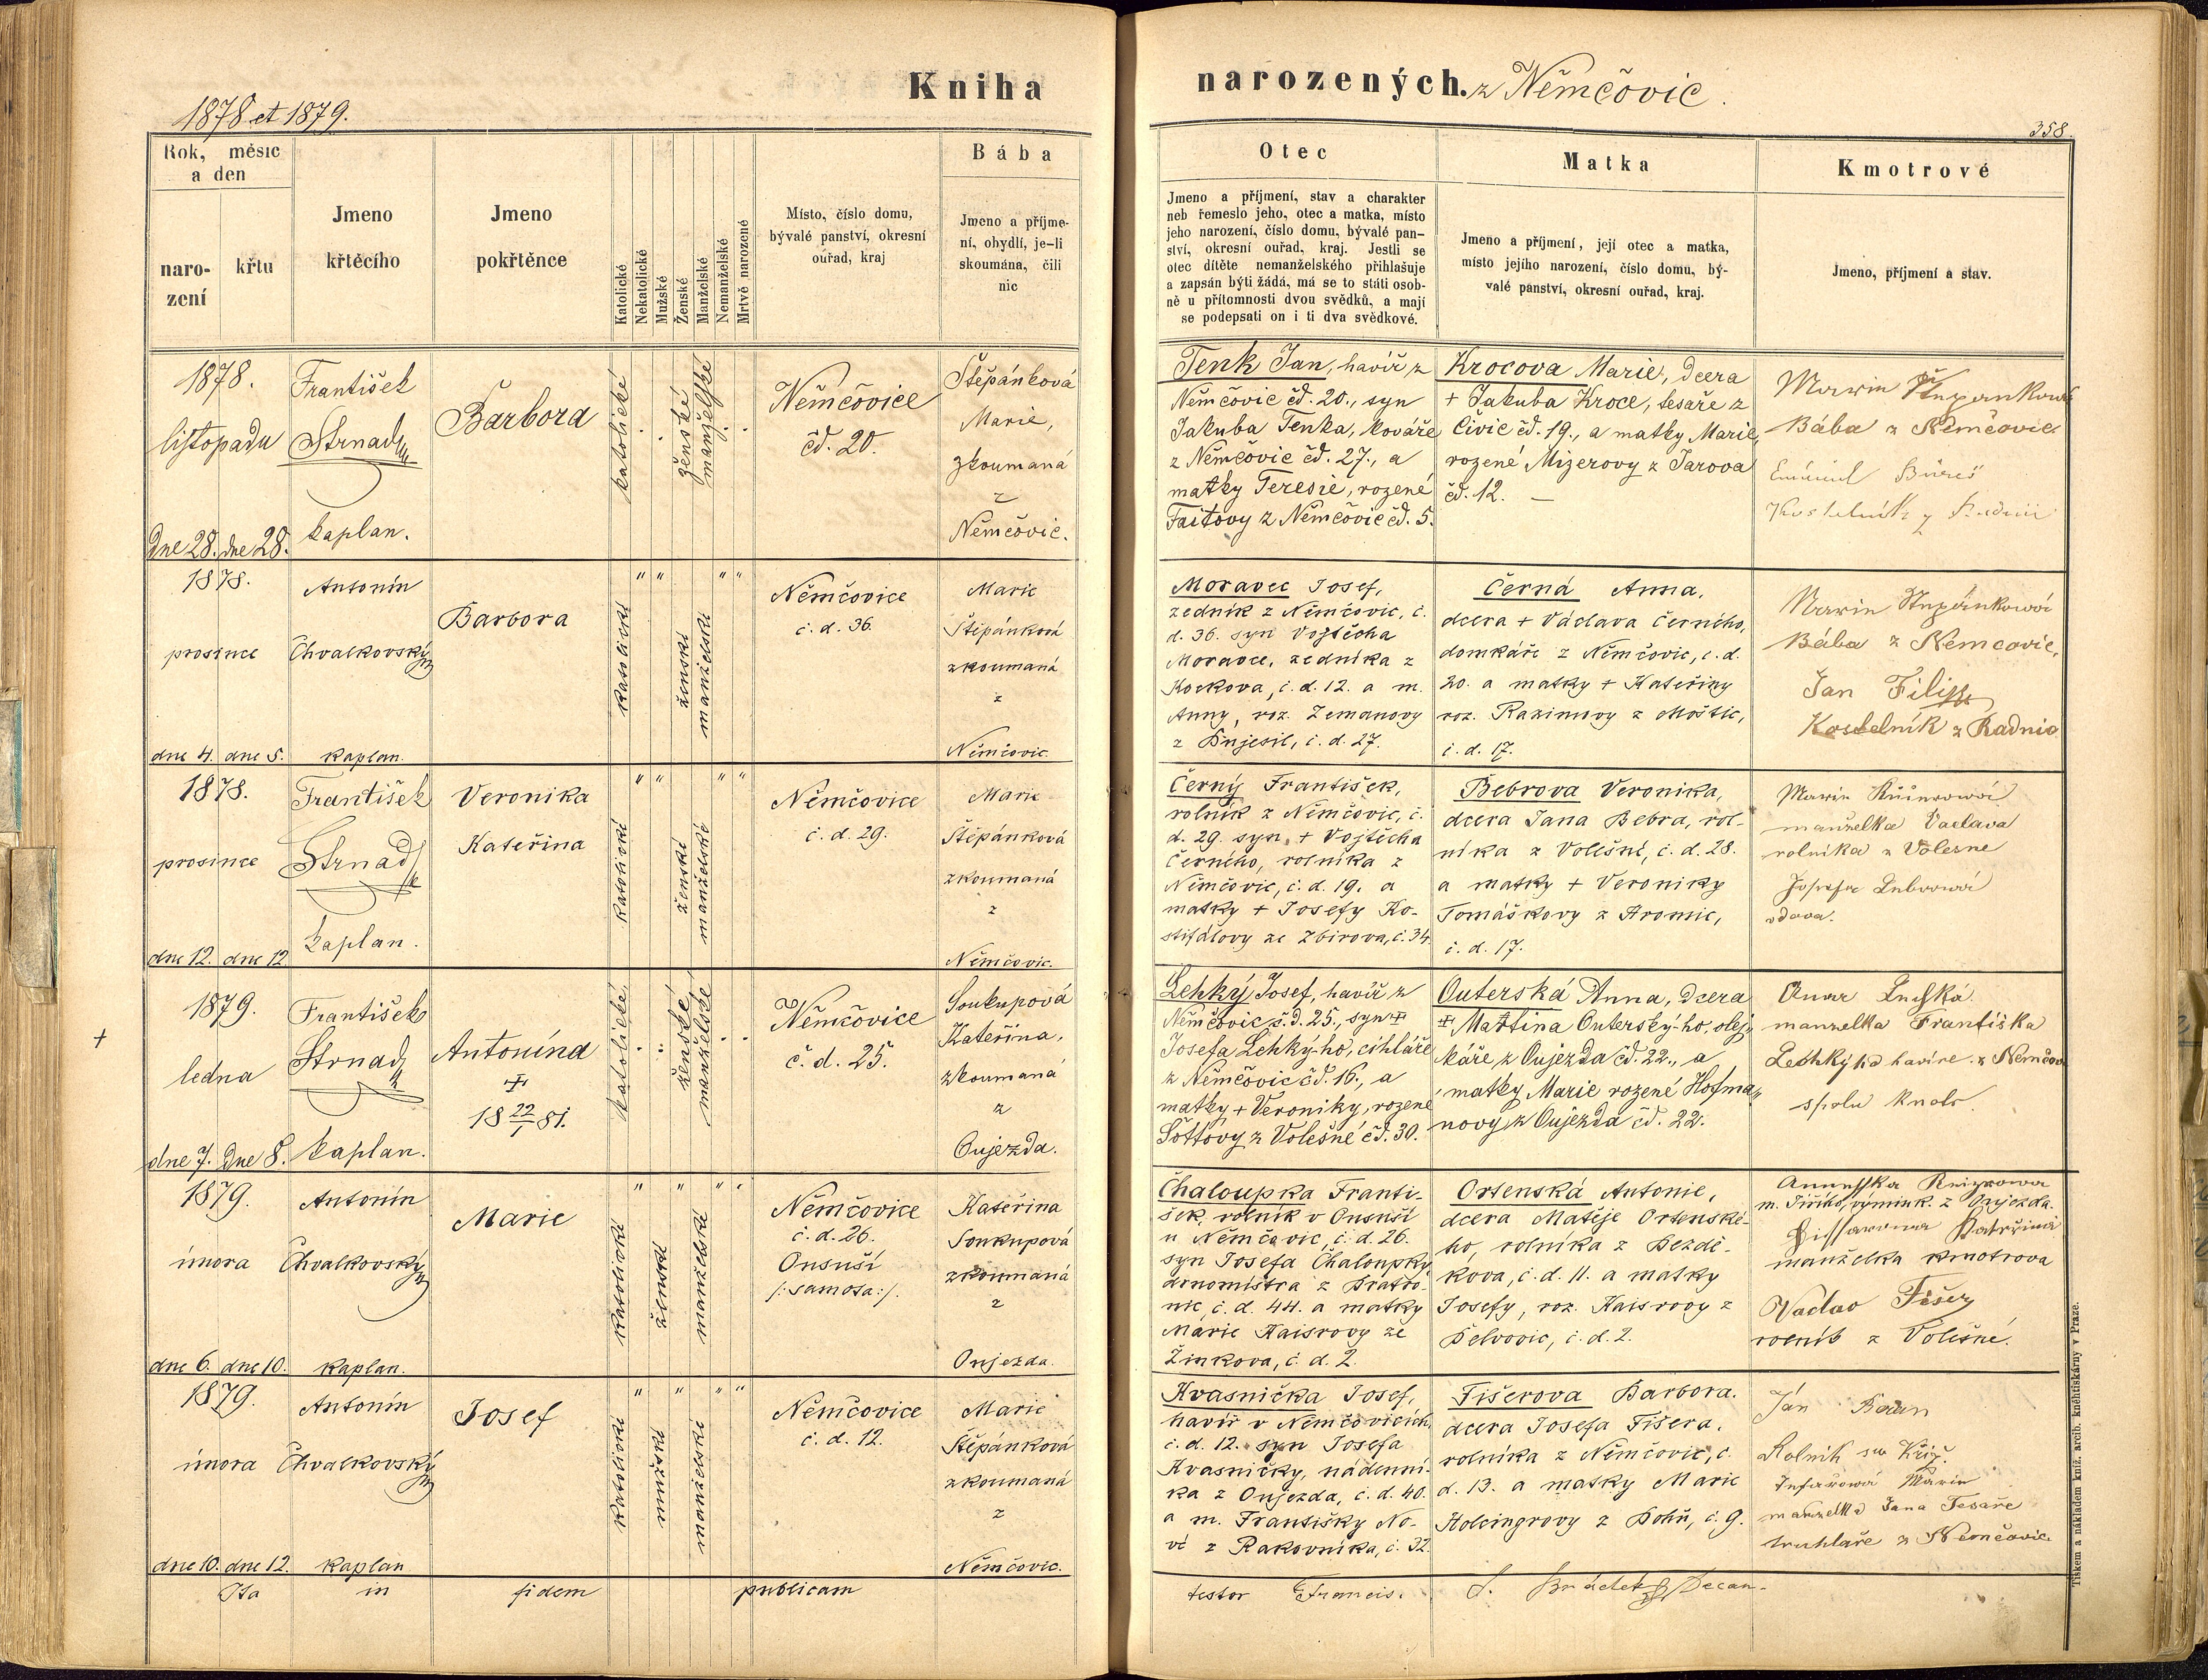 Kniha
1878 et 1879.
Rok, měsíc
a den
naro-
zení
křtu
Jmeno
křtěcího
Jmeno
pokřtěnce
Katolické
Nekatolické
Mužské
Ženské
Manželské
Nemanželské
Mrtvě narozené
Místo, číslo domu,
bývalé panství, okresní
ouřad, kraj
Bába
Jmeno a příjme-
ní, obydlí, je-li
skoumána, čili
nic
1878.
listopadu
dne 28. dne 28.
František
Strnad
kaplan.
Barbora
katolické
ženské
manželské
Němčovice
čd. 20.
Štěpánková
Marie,
zkoumaná
z
Němčovic.
1878.
prosince
dne 4. dne 5.
Antonín
Chvalkovský
kaplan.
Barbora
katolické
ženské
manželské
Němčovice
č. d. 36.
Marie
Štěpánková
zkoumaná
z
Němčovic.
1878.
prosince
dne 12. dne 12
František
Strnad
kaplan.
Veronika
Kateřina
katolické
ženské
manželské
Němčovice
č. d. 29.
Marie
Štěpánková
zkoumaná
z
Němčovic.
+
1879.
ledna
dne 7. dne 8.
František
Strnad
kaplan.
Antonína
+
18 22/1 81.
katolické
ženské
manželské
Němčovice
č. d. 25.
Soukupová
Kateřina,
zkoumaná
z
Oujezda.
1879.
února
dne 6. dne 10.
Antonín
Chvalkovský
kaplan.
Marie
katolické
ženské
manželské
Němčovice
č. d. 26.
Onsuší
/: samota :/.
Kateřina
Soukupová
zkoumaná
z
Oujezda.
1879.
února
dne 10. dne 12.
Antonín
Chvalkovský
kaplan
Josef
katolické
mužské
manželské
Němčovice
č. d. 12.
Marie
Štěpánková
zkoumaná
z
Němčovic.
Ita in fidem publicam
narozených. z Němčovic.
358.
Otec
Jmeno a příjmení, stav a charakter
neb řemeslo jeho, otec a matka, místo
jeho narození, číslo domu, bývalé pan-
ství, okresní ouřad, kraj. Jestli se
otec dítěte nemanželského přihlašuje
a zapsán býti žádá, má se to státi osob-
ně u přítomnosti dvou svědků, a mají
se podepsati on i ti dva svědkové.
Matka
Jmeno a příjmení, její otec a matka,
místo jejího narození, číslo domu, bý-
valé panství, okresní ouřad, kraj.
Kmotrové
Jmeno, příjmení a stav.
Tenk Jan, havíř z
Němčovic čd. 20., syn
Jakuba Tenka, kováře
z Němčovic čd. 27., a
matky Teresie, rozené
Faitovy z Němčovic čd. 5.
Krocova Marie, dcera
+ Jakuba Kroce, tesaře z
Čivic čd. 19., a matky Marie,
rozené Mizerovy z Jarova
čd. 12. —
Bába z Němčovic
Moravec Josef,
zedník z Němčovic, č.
d. 36. syn Vojtěcha
Moravce, zedníka z
Kockova, č. d. 12. a m.
Anny, roz. Zemanovy
z Bujesil, č. d. 27.
Černá Anna,
dcera + Václava Černého,
domkáře z Němčovic, č. d.
20. a matky + Kateřiny
roz. Razimovy z Moštic,
č. d. 17.
Bába z Němcovic,
Jan Filip
Kostelník z Radnic
Černý František,
rolník z Němčovic, č.
d. 29. syn + Vojtěcha
Černého, rolníka z
Němčovic, č. d. 19. a
matky + Josefy Ko-
stifálovy ze Zbirova, č. 34.
Bebrova Veronika,
dcera Jana Bebra, rol-
níka z Volešné, č. d. 28.
a matky + Veroniky
Tomáškovy z Hromic,
č. d. 17.
manželka Vaclava
rolníka z Volesne
vdova.
Lehký Josef, havíř z
Němčovic č. d. 25., syn +
Josefa Lehký-ho, cihláře
z Němčovic čd. 16., a
matky + Veroniky, rozené
Šottovy z Volešné čd. 30.
Outerská Anna, dcera
+ Martina Outerský-ho, olej-
káře z Oujezda čd. 22., a
matky Marie rozené Hofma-
novy z Oujezda čd. 22.
manzelka Františka
Lechkýho havíre z Němčov
Chaloupka Franti-
šek, rolník v Onsuší
u Němčovic, č. d. 26.
syn Josefa Chaloupky,
drnomistra z Bratro-
nic, č. d. 44. a matky
Marie Kaisrovy ze
Žinkova, č. d. 2.
Ortenská Antonie,
dcera Matěje Ortenské-
ho, rolníka z Bezdě-
kova, č. d. 11. a matky
Josefy, roz. Kaisrovy z
Delvovic, č. d. 2.
m. Jiřího, výmink. z Oujezda.
manželka kmotrova
Vaclav Fišer
rolník z Volešné.
Kvasnička Josef,
havíř v Němčovicích,
č. d. 12. syn Josefa
Kvasničky, nádenní-
ka z Oujezda, č. d. 40.
a m. Františky No-
vé z Rakovníka, č. 32.
Fišerova Barbora.
dcera Josefa Fišera,
rolníka z Němčovic, č.
d. 13. a matky Marie
Holeingrovy z Dohň, č. 9.
Ján
manzelka Jana Tesaře
truhlaře z Němčovic.
testor Francis. Decan.
Tiskem a nákladem kníž. arcib. kněhtiskárny v Praze.